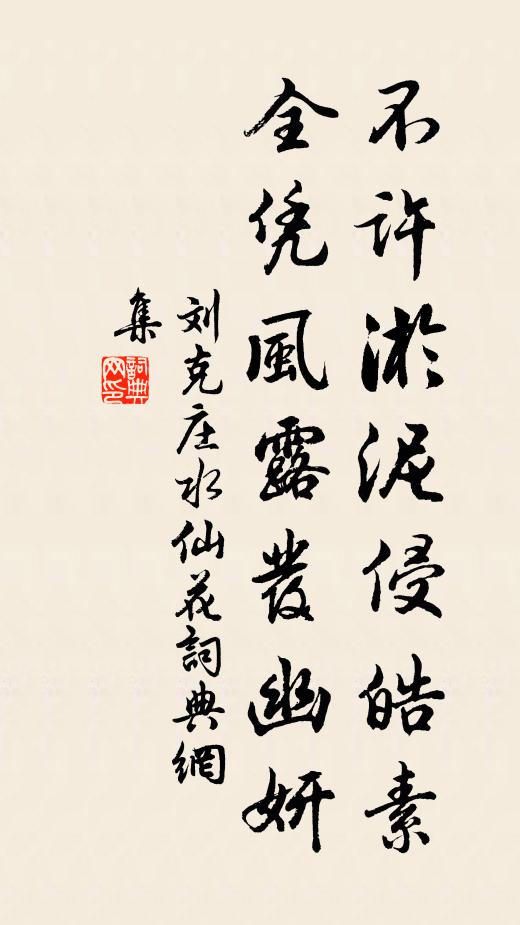 不许淤泥侵皓素
全凭風露發幽妍
刘克庄水仙花詞典網
集
詞典
网印